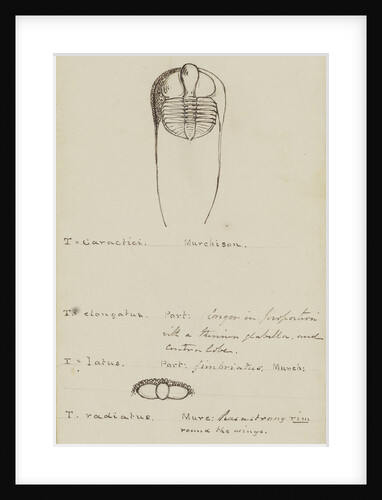 T = Caractici. Murchison.
T= elongatus. Part: longer in proportion
with a thinner glabella, and
central lobe.
T = latus. Part: fimbriatus, Murch:
T. radiatus. Murc: has a strong rim
round the wings.